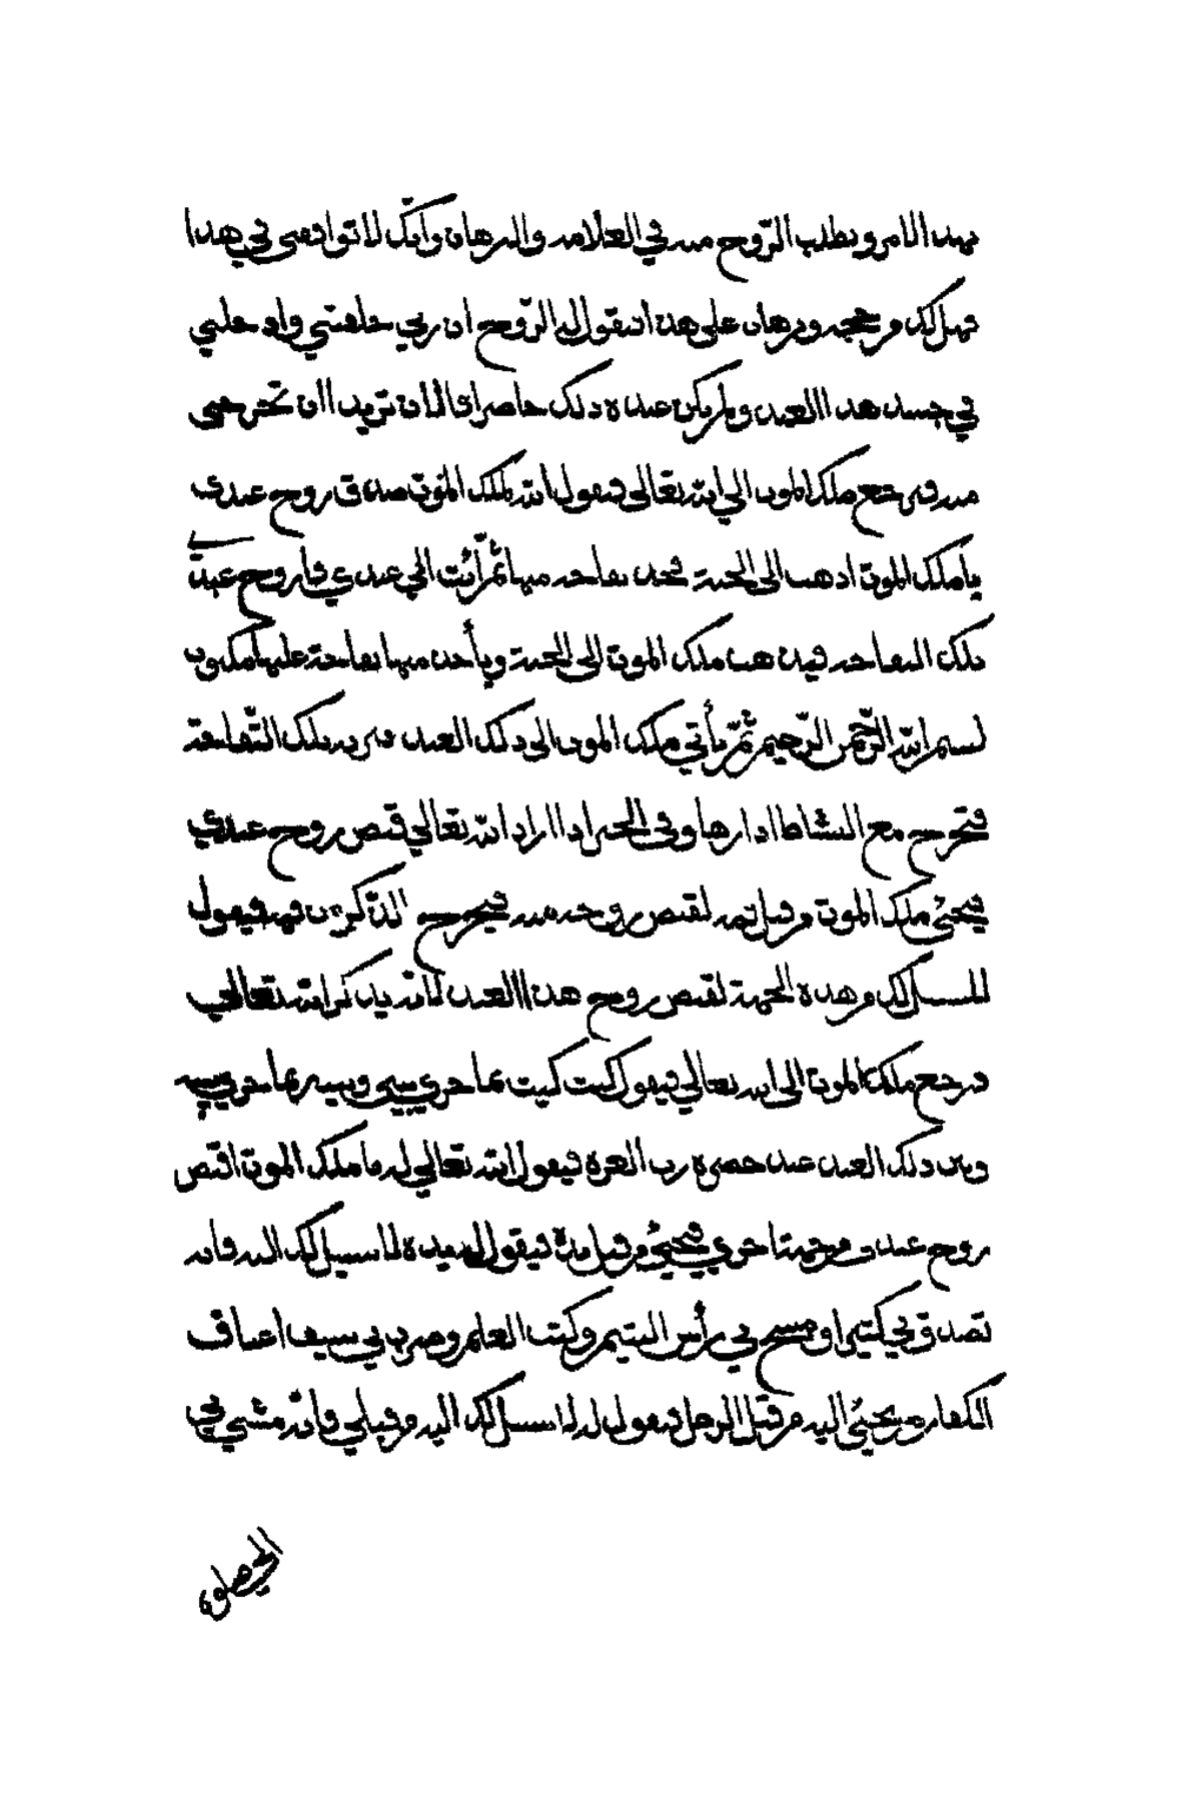 بهذا الامر ويطلب الرّوح منه في العلامة والبرهان وانّك لا توافقني في هذا
فهل لك من حجة وبرهان على هذا فيقول له الرّوح ان ربي خلقني وادخلني
في جسد هذا العبد ولم يكن عنده ذلك حاضرا فالان تريد ان تخرجني
منه فيرجع ملك الموت الى الله تعالى فيقول الله لملك الموت صدق روح عبدي
يا ملك الموت اذهب الى الجنة فخذ تفاحة منها ثمّ أئت الى عبدي فار روح عبدي
ذلك التفاحة فيذهب ملك الموت الى الجنة ويأخذ منها تفاحة عليها مكتوب
بسم الله الرّحمن الرّحيم ثمّ يأتي ملك الموت الى ذلك العبد فيريه بتلك التّفاحة
فتخرج مع النشاط اذا رها وفى الخبر اذا اراد الله تعالى قبض روح عبدي
فيجئ ملك الموت من قبل فمه لقبض روحه منه فيخرج الذّكر من فمه فيقول
لا سبيل لك من هذه الجهة لقبض روح هذا العبد لانه يذكر الله تعالى
فيرجع ملك الموت الى الله تعالى فيقول كيت كيت بما جرى بينى وبينه بما جرى بينه
وبين ذلك العبد عند حضرة رب العزة فيقول الله تعالى له يا ملك الموت اقبض
روح عبدى من جهة اخرى فيجئ من قبل يده فيقول له يده لا سبيل لك اليه فانه
تصدق بي كثيرا ومسح بي رأس اليتيم وكتب العلم وضرب بي سيف اعناق
الكفار ويجئ اليه من قبل الرجل فيقول له لا سبيل لك اليه من قبلي فانه مشى بي
الى صلوة